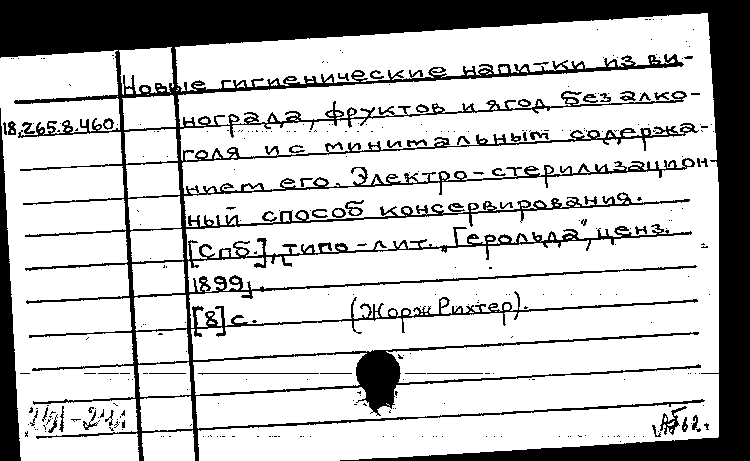 Новые гигиенические напитки из ви-
18.265.8.460. нограда, фруктов и ягод без алко-
голя и с минитальным содержа-
нием его. Электро-стерилизацион-
ный способ консервирования.
[Спб.], типо-лит. „Герольда", ценз.
1899].
[8] с. (Жорж Рихтер).